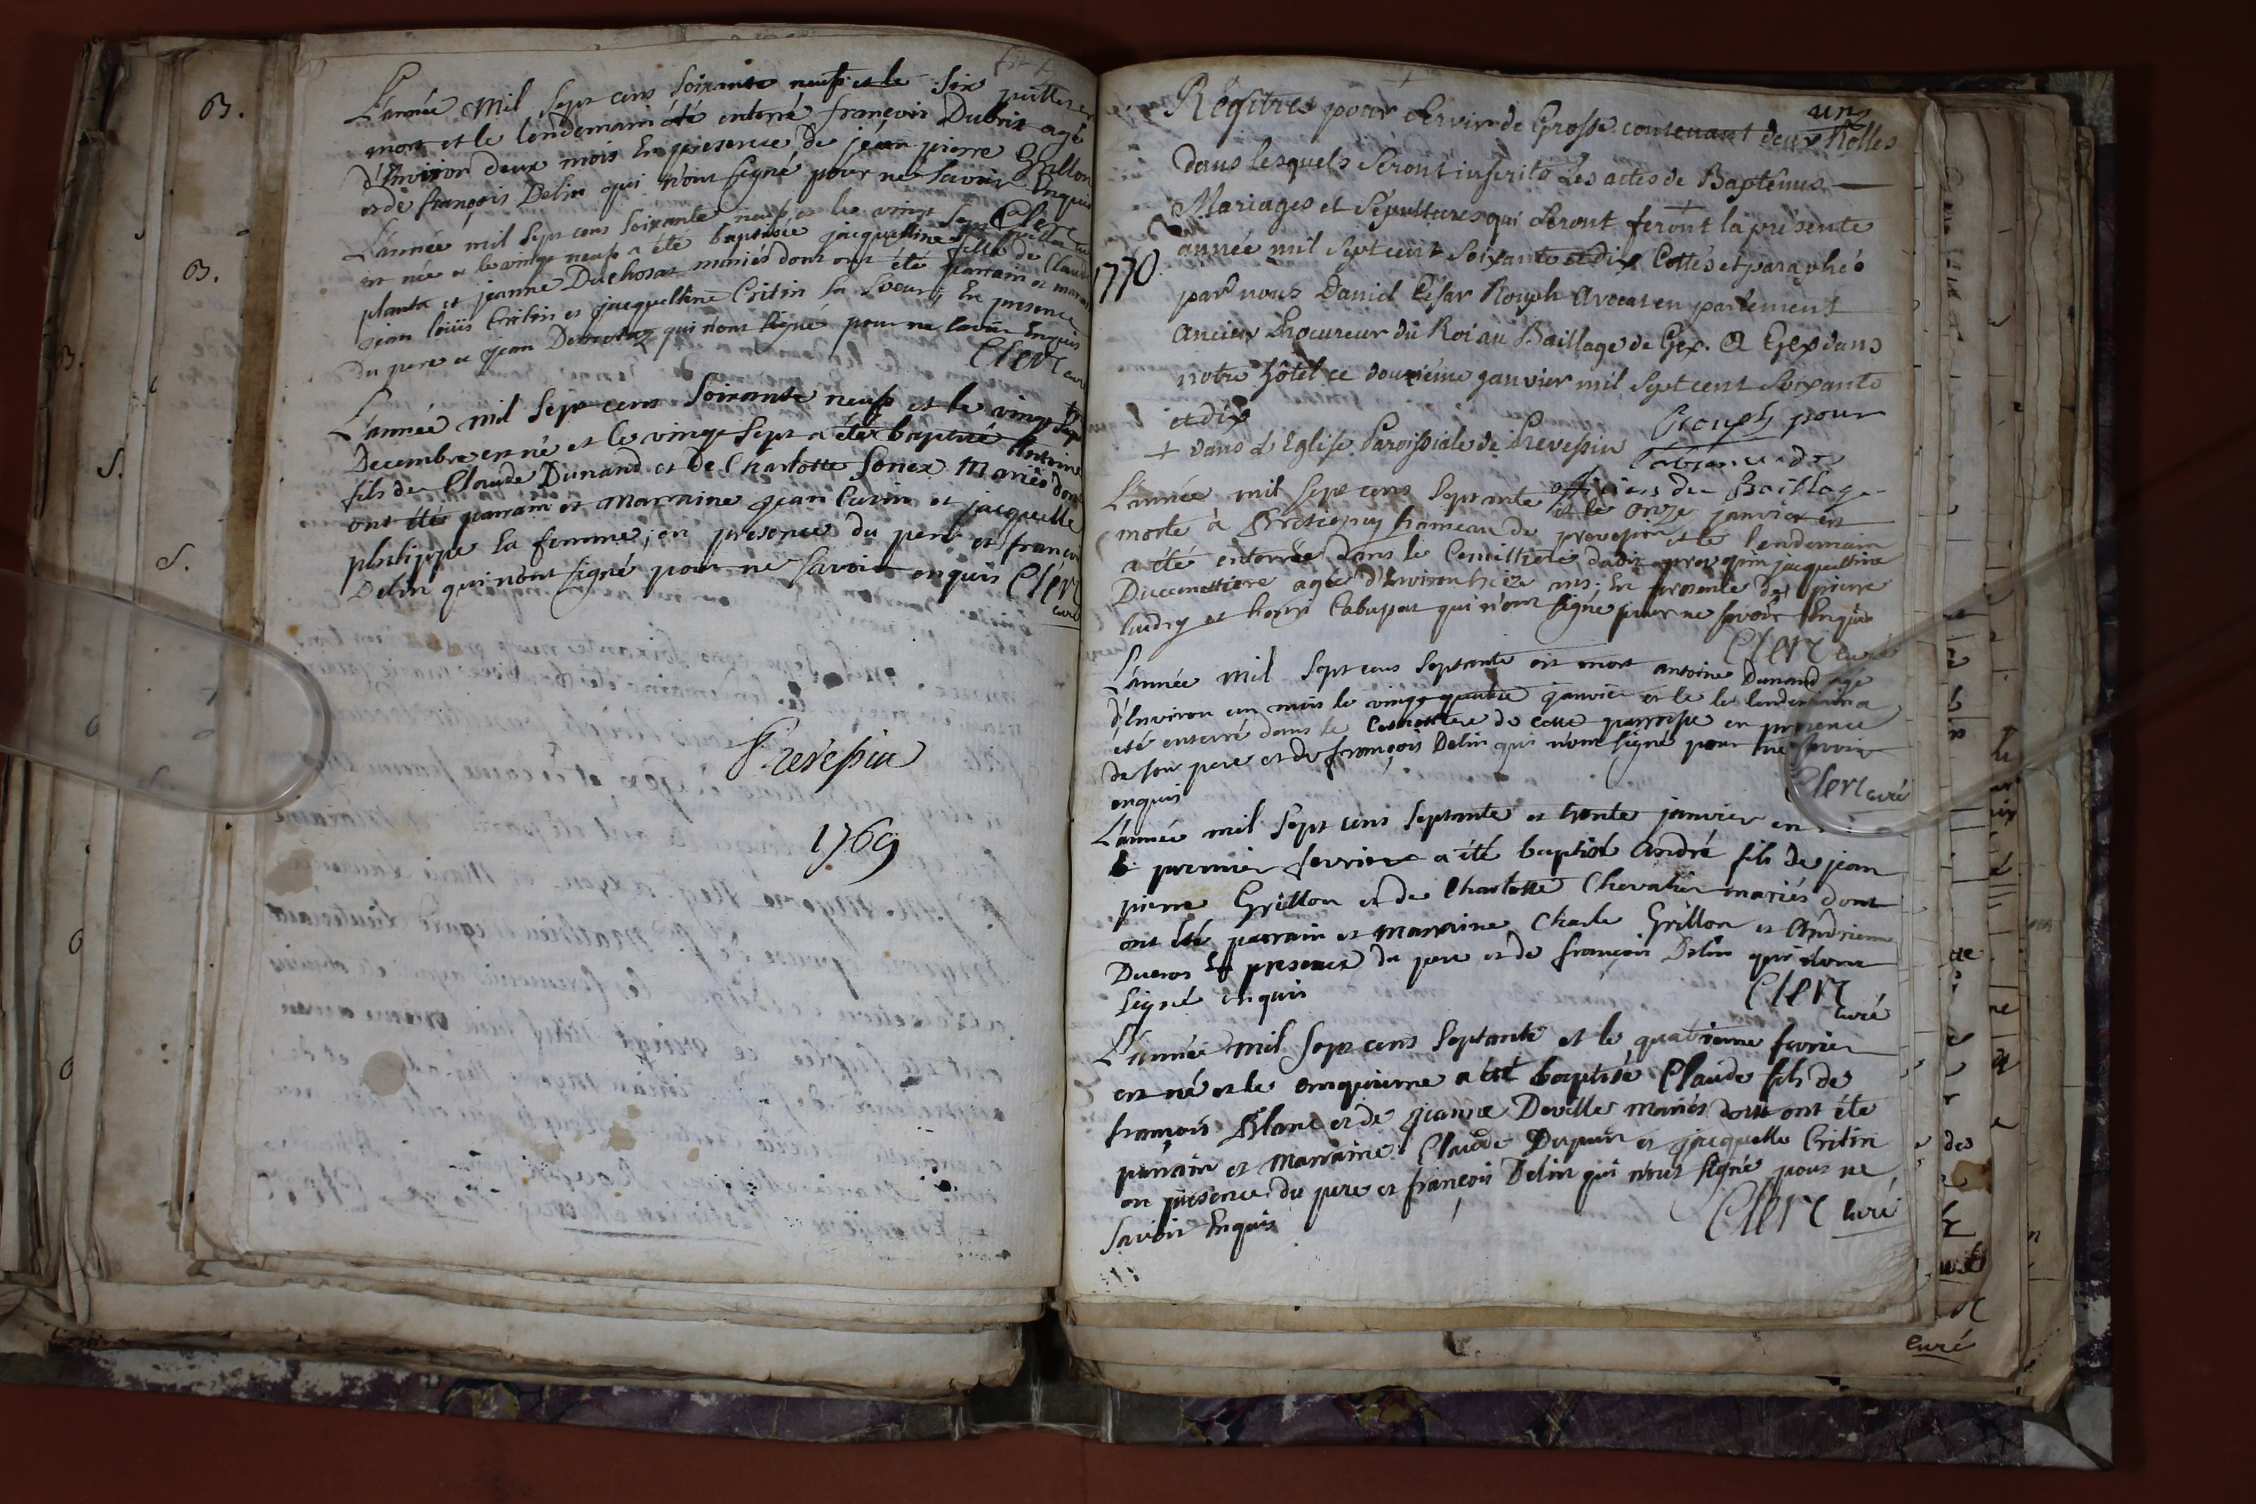 B.
B.
B.
S.
S.
L'année Mil sept cens soixante neuf et le six juillet est
mort et le lendemain été enterré françois Dubrit agé
d'Environ deux mois En presence de jean pierre Grillon
et de françois Delin qui n'ont signé pour ne savoir Enquis
Clerc curé
L'année mil sept cens soixante neuf et le vingt sept
est née et le vingt neuf a été baptisée jacqueline fille de Claude
planta et jeanne Duchosat mariés dont ont été parrain et marraine
jean loüis Critin et jacquelline Critin sa soeur, En presence
du pere et jean qui n'ont signé pour ne savoir Enquis
Clerc curé
L'année mil sept cens soixante neuf et le vingt sept
Decembre est né et le vingt sept a été baptisé Antoine
fils de Claude Dunand et de Charlotte Sonex Mariés dont
ont été parrain et marraine jean Cusin et jacquelle
philippe sa femme, en presence du pere et françois
Delin qui n'ont signé pour ne savoir enquis Clerc
curé
Prevessin
1769
un
Regitres pour servir de Grosse contenant deux Rolles
dans lesquels seront inscrits Les actes de Baptêmes
Mariages et Sépultures qui seront feront + la présente
1770
année mil sept cent soixante et dix Cottés et paraphés
par nous Daniel César Rouph Avocat en parlement
ancien Procureur du Roi au Baillage de Gex. A Gex dans
notre hôtel ce douzième janvier mil sept cent soixante
et dix
Rouph pour
+ dans L'Eglise Paroissiale de Prevessin
l'absence des
officiers du Baillage
L'année mil sept cens septante et le onze janvier est
morte à Bretigny hameau de prevessin et le lendemain
a été enterrée dans le Cemittiere dudit prevessin jacquelline
Ducimettiere agée d'Environ treize ans; En presence de pierre
Ludry et henri Cabussat qui n'ont signé pour ne savoir Enquis
Clerc curé
L'année Mil sept cens septante est mort antoine Dunand agé
d'Environ un mois le vingt quatre janvier et le le lendemain a
été enterré dans le Cemittiere de cette parroisse en presence
de son pere et de françois Delin qui n'ont signé pour ne savoir
enquis
Clerc curé
L'année mil sept cens septante et trente janvier est
le premier fevrier a été baptisé André fils de jean
pierre Grillon et de Charlotte Chevalier mariés dont
ont été parrain et marraine Charle Grillon et Andrienne
Ducros En presence du pere et de françois Delin qui n'ont
signé enquis
Clerc
curé
L'année mil sept cens septante et le quatrieme fevrier
est né et le cinquieme a été baptisé Claude fils de
françois Blanc et de jeanne Deville mariés dont ont été
parrain et marraine Claude Dupuis et jacquelle Critin
en presence du pere et françois Delin qui n'ont signé pour ne
savoir Enquis
Clerc curé
curé